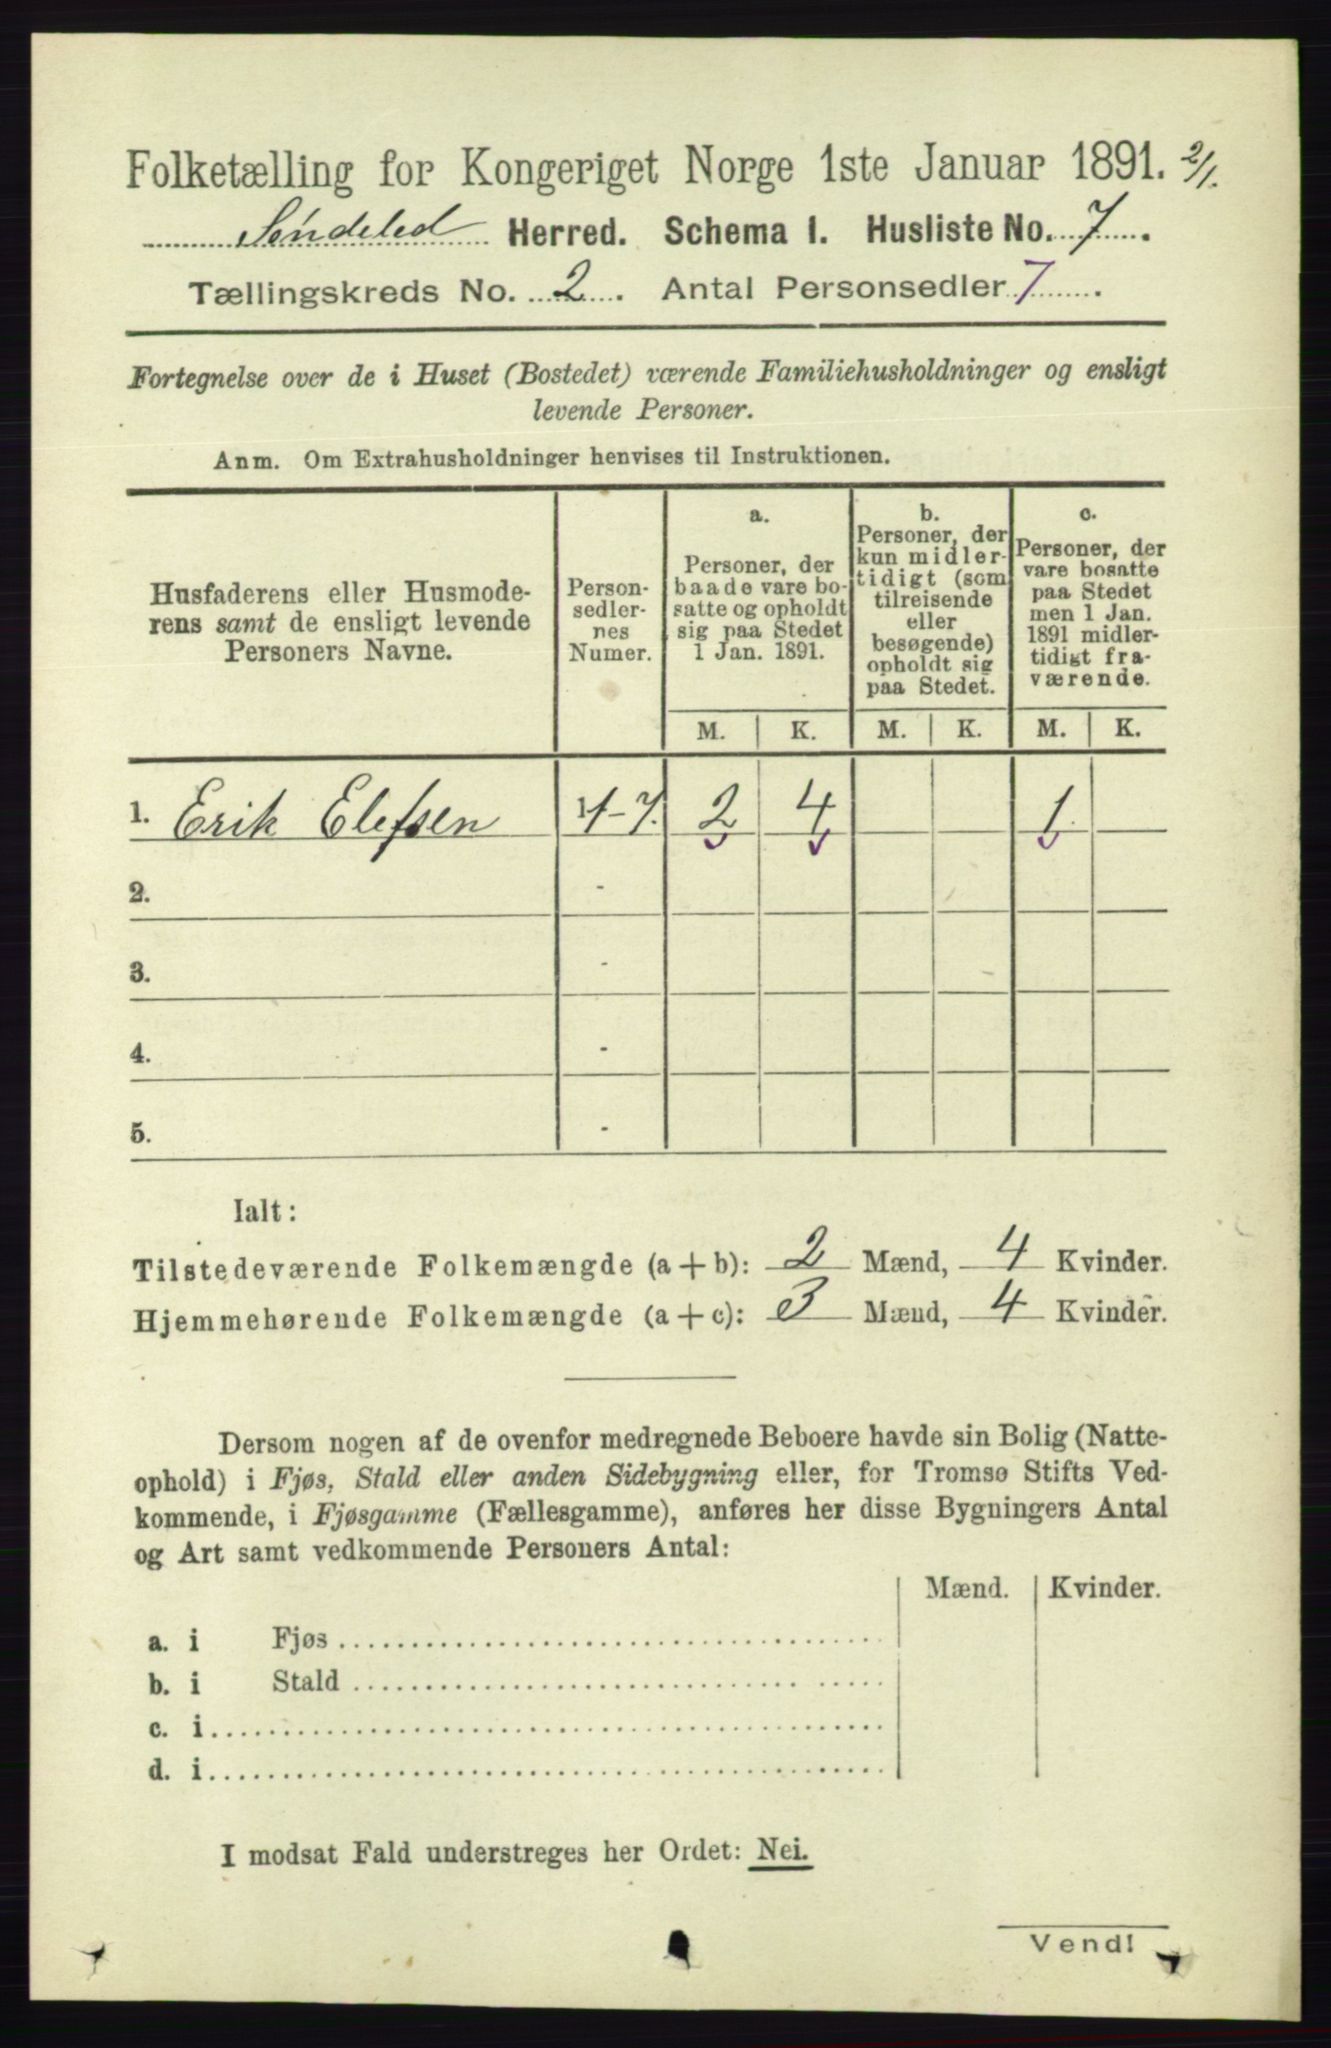 Folketælling for Kongeriget Norge 1ste Januar 1891. 2/1.
Søndeled Herred. Schema I. Husliste No. 7.
Tællingskreds No. 2. Antal Personsedler 7.
Fortegnelse over de i Huset (Bostedet) værende Familiehusholdninger og ensligt
levende Personer.
Anm. Om Extrahusholdninger henvises til Instruktionen.
Husfaderens eller Husmode-
rens samt de ensligt levende
Personers Navne.
Person-
sedler-
nes
Numer.
a.
Personer, der
baade vare bo-
satte og opholdt
sig paa Stedet
1 Jan. 1891.
b.
Personer, der
kun midler-
tidigt (som
tilreisende
eller
besøgende)
opholdt sig
paa Stedet.
c.
Personer, der
vare bosatte
paa Stedet
men 1 Jan.
1891 midler-
tidigt fra-
værende.
M. K. M. K. M. K.
1. Erik Elefsen 1-7. 2 4 1.
2. -
3. -
4. -
5. -
Ialt:
Tilstedeværende Folkemængde (a + b): 2 Mænd, 4 Kvinder.
Hjemmehørende Folkemængde (a + c): 3 Mænd, 4 Kvinder.
Dersom nogen af de ovenfor medregnede Beboere havde sin Bolig (Natte-
ophold) i Fjøs, Stald eller anden Sidebygning eller, for Tromsø Stifts Ved-
kommende, i Fjøsgamme (Fællesgamme), anføres her disse Bygningers Antal
og Art samt vedkommende Personers Antal:
Mænd. Kvinder.
a. i Fjøs
b. i Stald
c. i
d. i
I modsat Fald understreges her Ordet: Nei.
Vend!